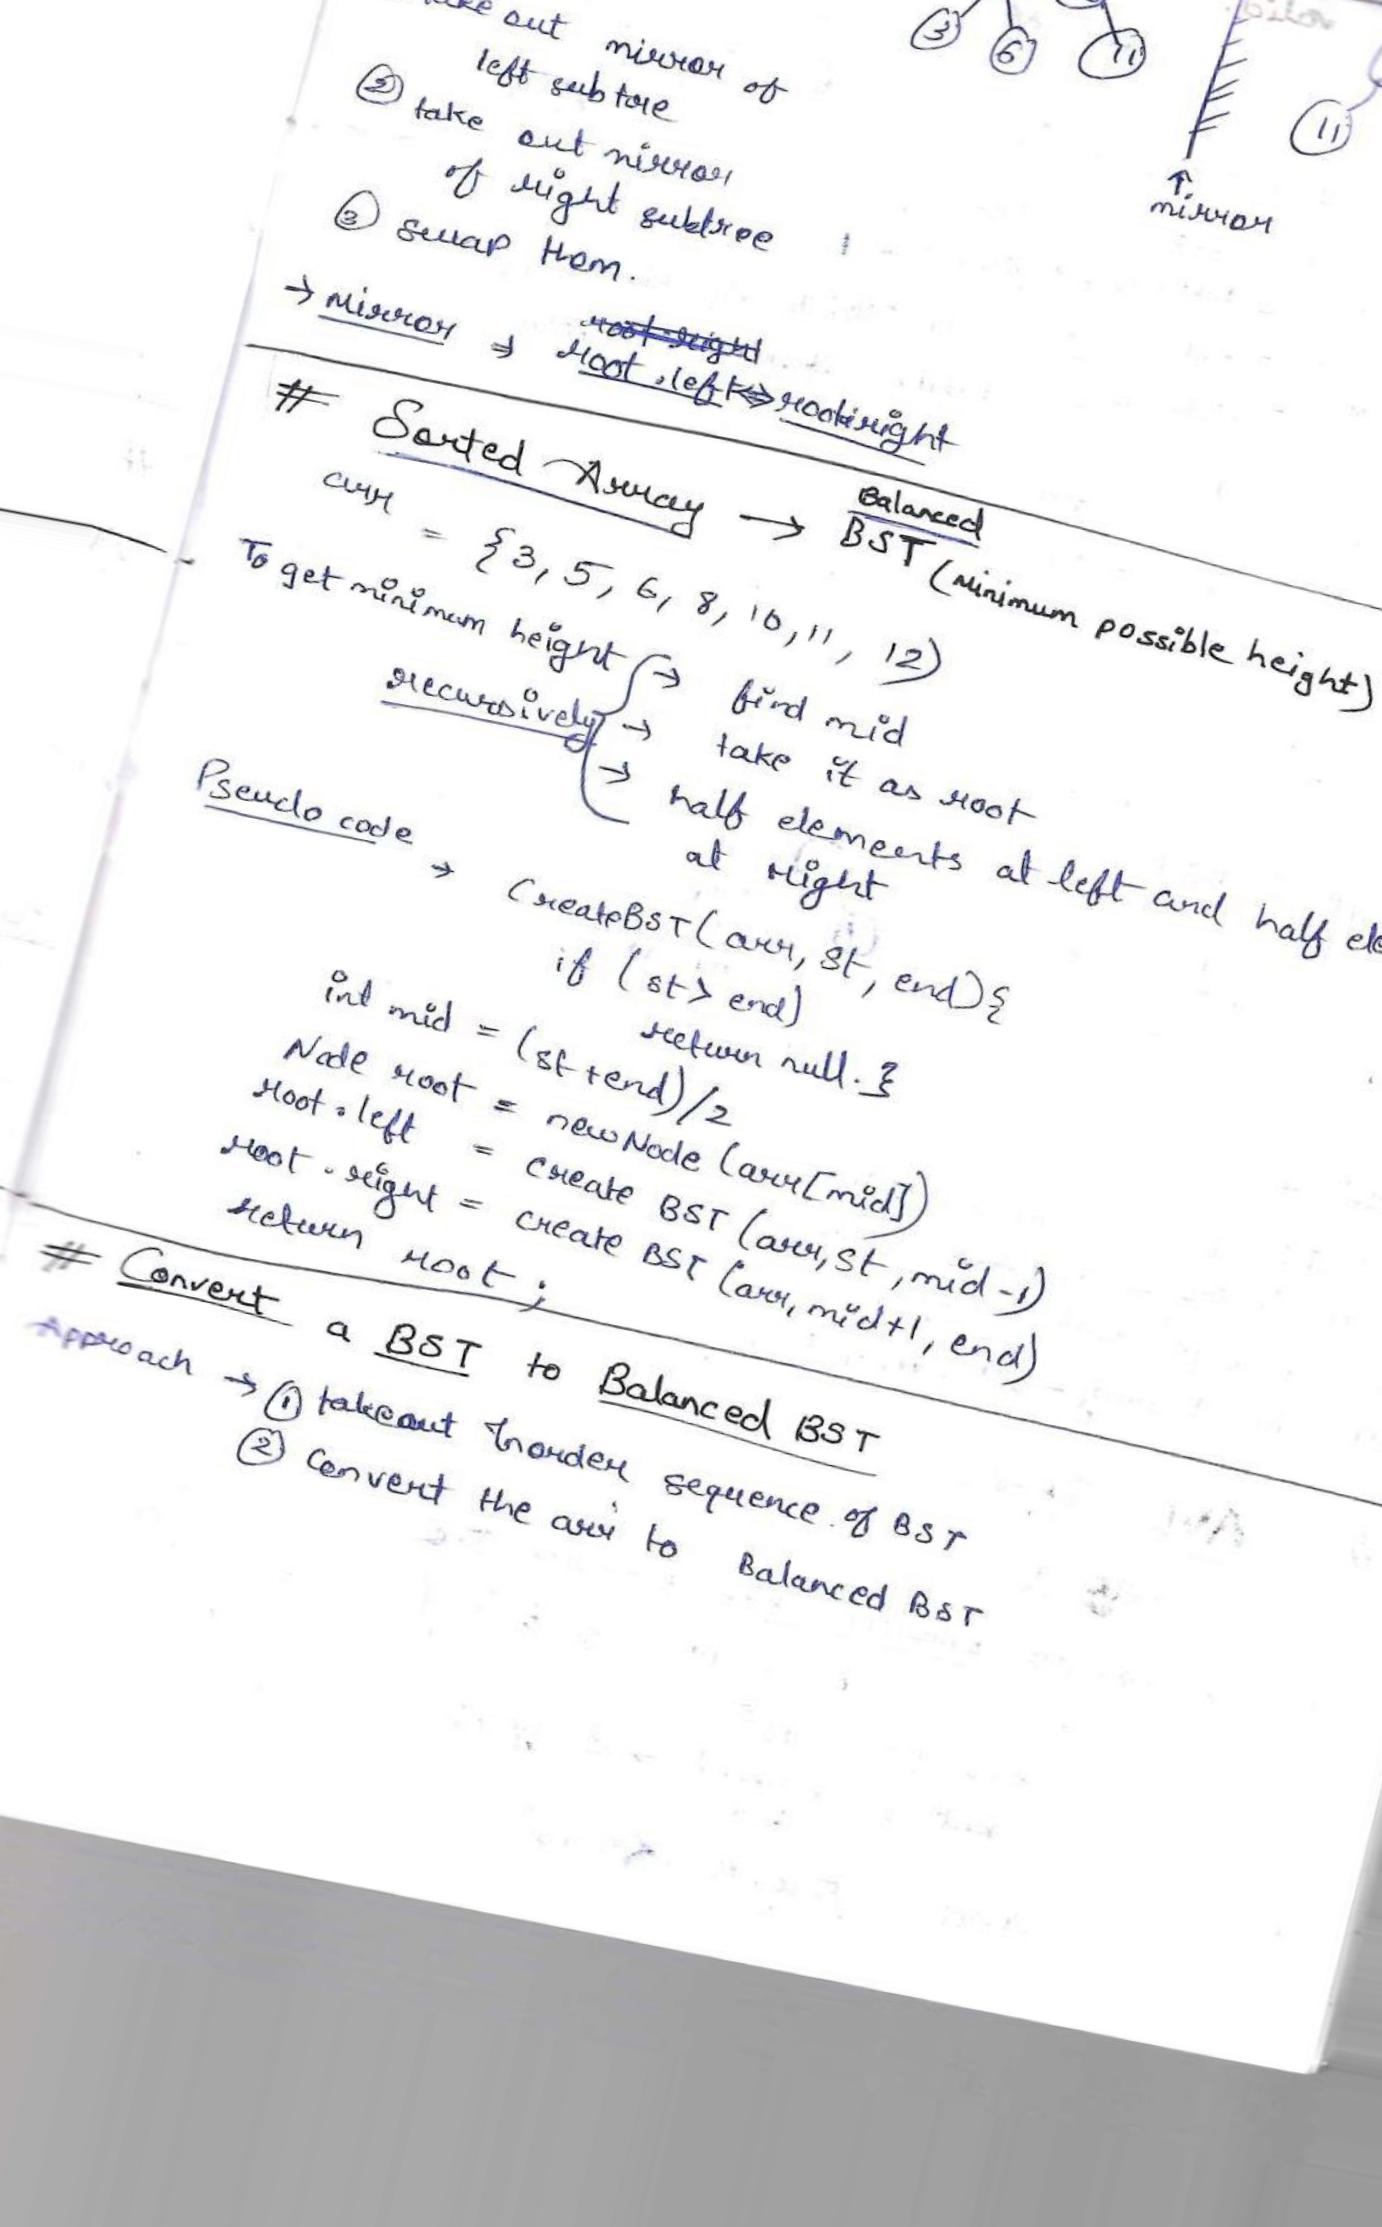 out mirror of
left subtree
② take out mirror
of right subtree
③ swap them.
→ mirror ⇒ root.left ⇔ root.right
3 6 11
11
↑
mirror
# Sorted Array → Balanced BST (Minimum possible height)
arr = {3, 5, 6, 8, 10, 11, 12}
To get minimum height → find mid
recursively → take it as root
→ half elements at left and half
at right
Pseudo code → CreateBST(arr, st, end){
if (st > end)
return null. }
int mid = (st+end)/2
Node root = new Node (arr[mid])
root.left = create BST (arr, st, mid-1)
root.right = create BST (arr, mid+1, end)
return root;
# Convert a BST to Balanced BST
Approach → ① takeout Inorder sequence of BST
② Convert the arr to Balanced BST